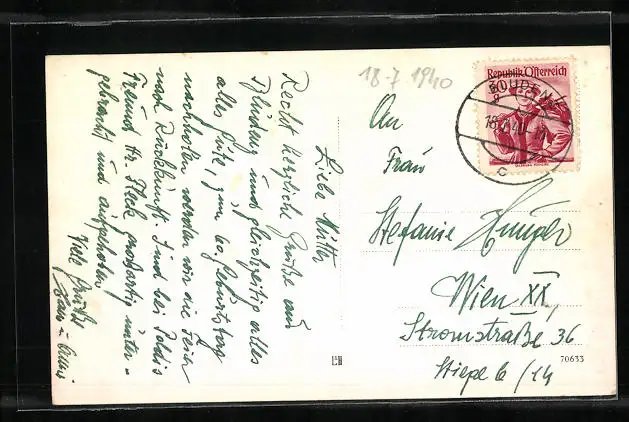 Liebe Mutti
Recht herzliche Grüße aus
Bludenz und gleichzeitig alles
alles Gute, zum 60. Geburtstag
nachholen werden wir die Feier
nach Rückkunft. Sind bei Poldis
Freund Hr. Fleck großartig unter-
gebracht und aufgehoben
Viele Grüße
18-7 1940
Republik Österreich
BLUDENZ
c
An
Frau
Stefanie
Wien XX,
Stromstraße 36
Stiege 6/14
70633